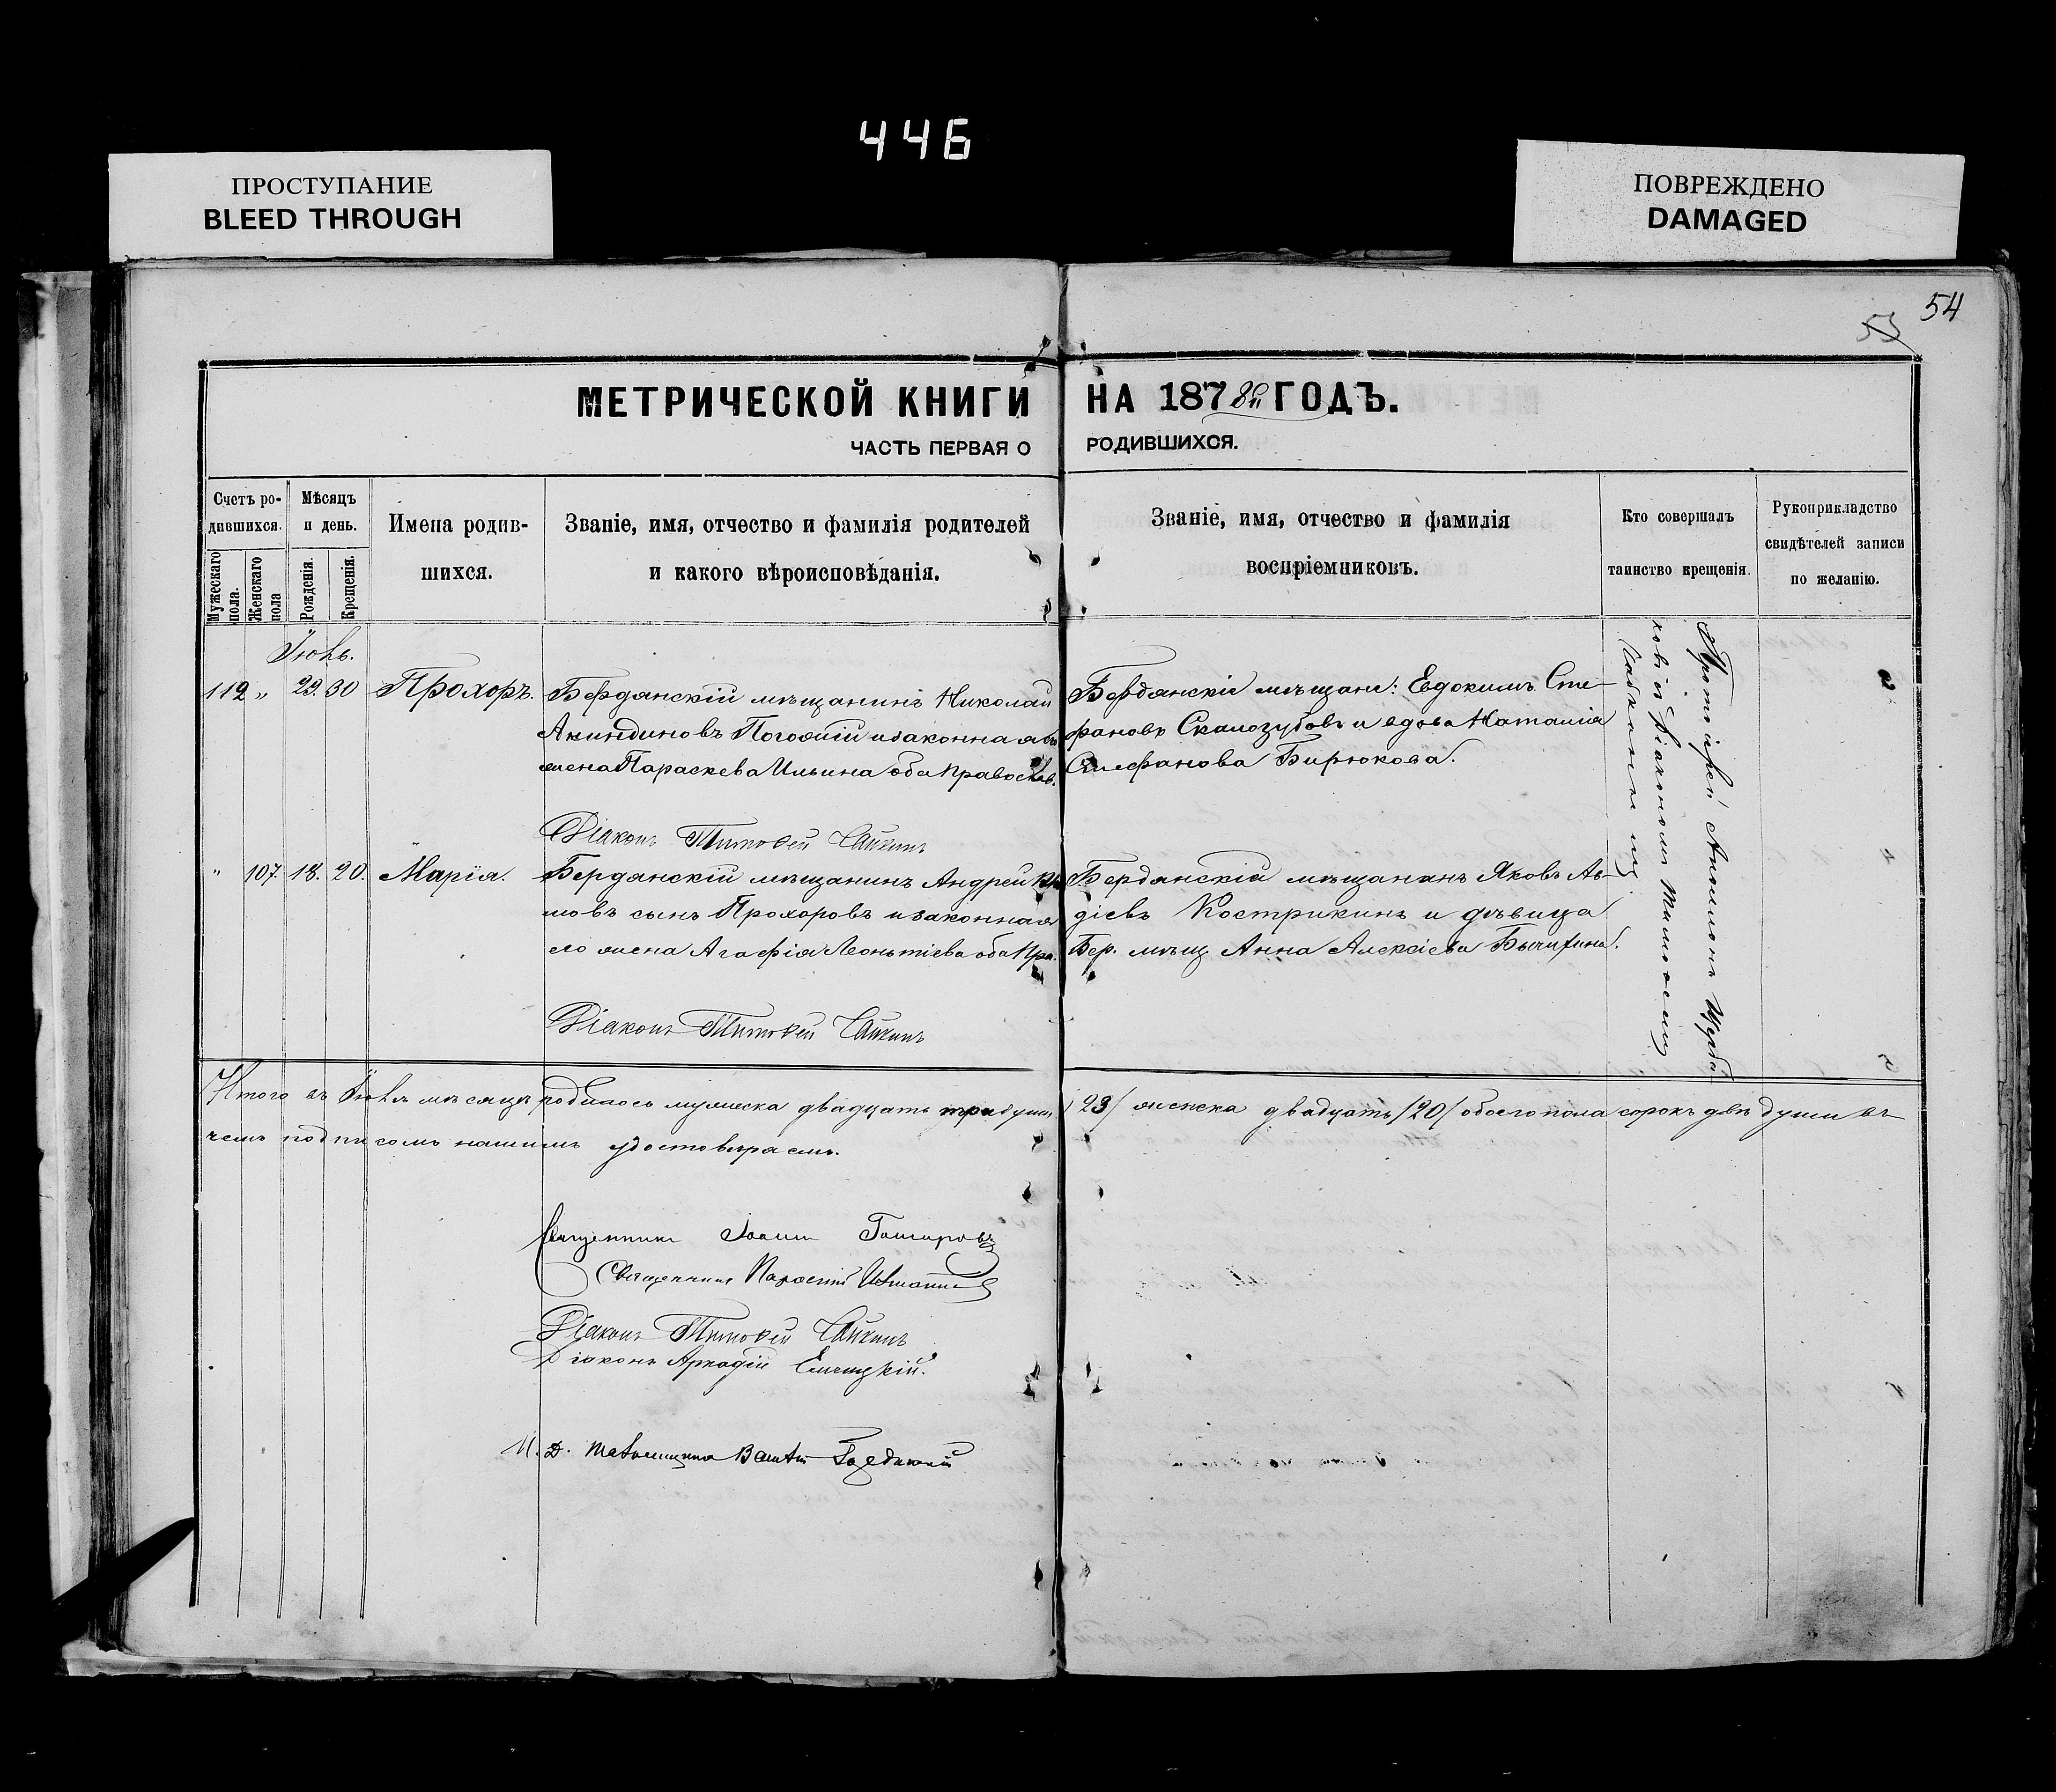 446
ПРОСТУПАНИЕ
BLEED THROUGH
ПОВРЕЖДЕНО
DAMAGED
54
53
МЕТРИЧЕСКОЙ КНИГИ НА 1878й ГОДЪ.
ЧАСТЬ ПЕРВАЯ О РОДИВШИХСЯ.
Счетъ ро-
дившихся.
Мужескаго пола.
Женскаго пола
Мѣсяцъ
и день.
Рожденія.
Крещенія.
Имена родив-
шихся.
Званіе, имя, отчество и фамилія родителей
и какого вѣроисповѣданія.
Званіе, имя, отчество и фамилія
воспріемниковъ.
Кто совершалъ
таинство крещенія.
Рукоприкладство
свидѣтелей записи
по желанію.
112 " 29. 30 Прохоръ.
Бердянскій мѣщанинъ Николай
Акиндиновъ и законная
жена Параскева Ильина оба Православ.
Діаконъ Тимофей Чайкинъ
Бердянскіе мѣщане: Евдокимъ Сте-
фановъ Скалозубовъ и вдова Наталія
Стефанова Бирюкова.
" 107. 18. 20. Марія.
Бердянскій мѣщанинъ Андрей
сынъ Прохоровъ и законная
его жена Агафія Леонтіева оба Пра.
Діаконъ Тимофей Чайкинъ
Бердянскій мѣщанинъ Яковъ Ав-
діевъ Кострикинъ и дѣвица
Бер. мѣщ Анна Алексіева
Протоіерей
ковъ съ Діакономъ Тимофеемъ
Чайкинымъ
Итого въ мѣсяцѣ родилось мужеска двадцать три души /23/ женска двадцать /20/ обоего пола сорокъ двѣ души въ
чемъ подписомъ нашимъ удостовѣряемъ.
Священникъ Іоаннъ
Священникъ
Діаконъ Тимофей Чайкинъ
Діаконъ Аркадій
И. Д.